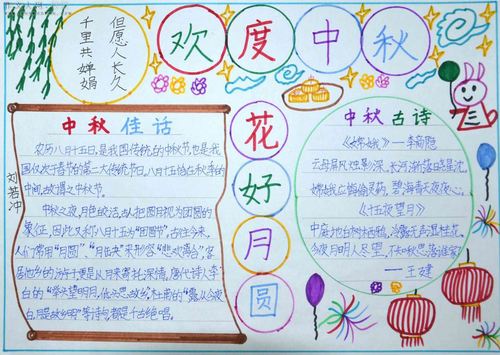 但愿人长久
千里共婵娟
欢度中秋
中秋佳话
农历八月十五日,是我国传统的中秋节,也是我
国仅次于春节的第二大传统节日。八月十五恰在秋季的
中间,故谓之中秋节。
中秋之夜,月色皎洁,古人把圆月视为团圆的
象征,因此,又称八月十五为“团圆节”。古往今来,
人们常用“月圆”、“月缺”来形容“悲欢离合”,客
居他乡的游子,更是以月来寄托深情。唐代诗人李
白的“举头望明月,低头思故乡”,杜甫的“露从今夜
白,月是故乡明”等诗句,都是千古绝唱。
刘若冲
花好月圆
中秋古诗
《嫦娥》——李商隐
云母屏风烛影深,长河渐落晓星沈。
嫦娥应悔偷灵药,碧海青天夜夜心。
《十五夜望月》
中庭地白树栖鸦,冷露无声湿桂花。
今夜月明人尽望,不知秋思落谁家?
——王建